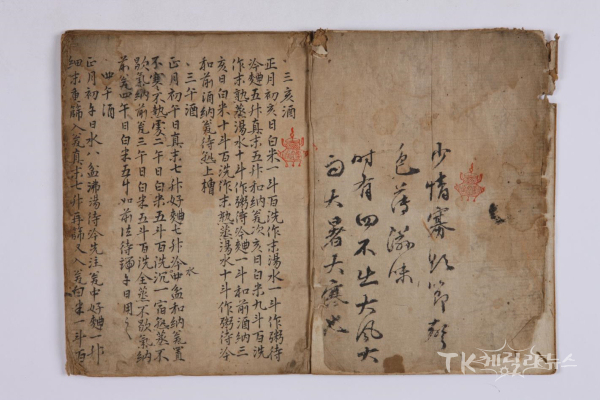 少情寡欲節聲
色薄滋味
時有四不出大風大
雨大暑大寒也
三亥酒
正月初亥日白米一斗百洗作末湯水一斗作粥待
冷麯五升真末五升和納瓮次亥日白米九斗百洗
作末熟蒸湯水十斗作粥待冷一斗和前酒納三
亥日白米十斗百洗作末熟蒸湯水十斗作粥待冷
和前酒納瓮待熟上槽
三午酒
正月初午日真末七升好麯七升冷水四盆和納瓮置
不寒不熱處二午日白米五斗百洗沉一宿熟蒸不
歇氣納前瓮三午日白米五斗百洗全蒸不歇氣納
前瓮四午日白米五斗如前法待端午日用之
四午酒
正月初午日水八盆沸湯待冷先注瓮中好麯一升
細末重篩入瓮真末七升再篩又入瓮白米一斗百
TK게릴라뉴스